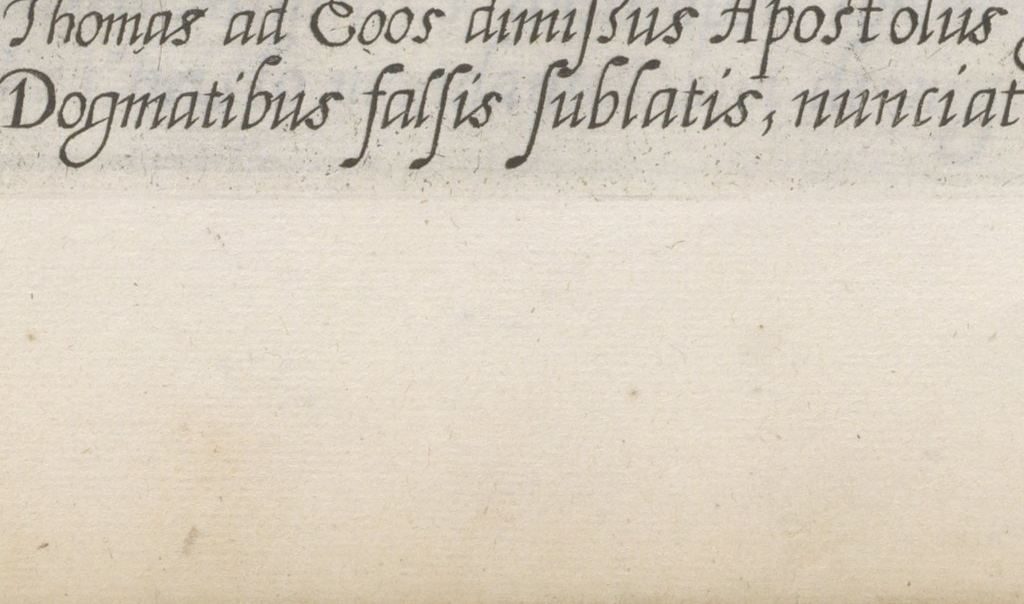 Thomas ad Eoos dimiſsus Apostolus
Dogmatibus falſis ſublatis, nunciat